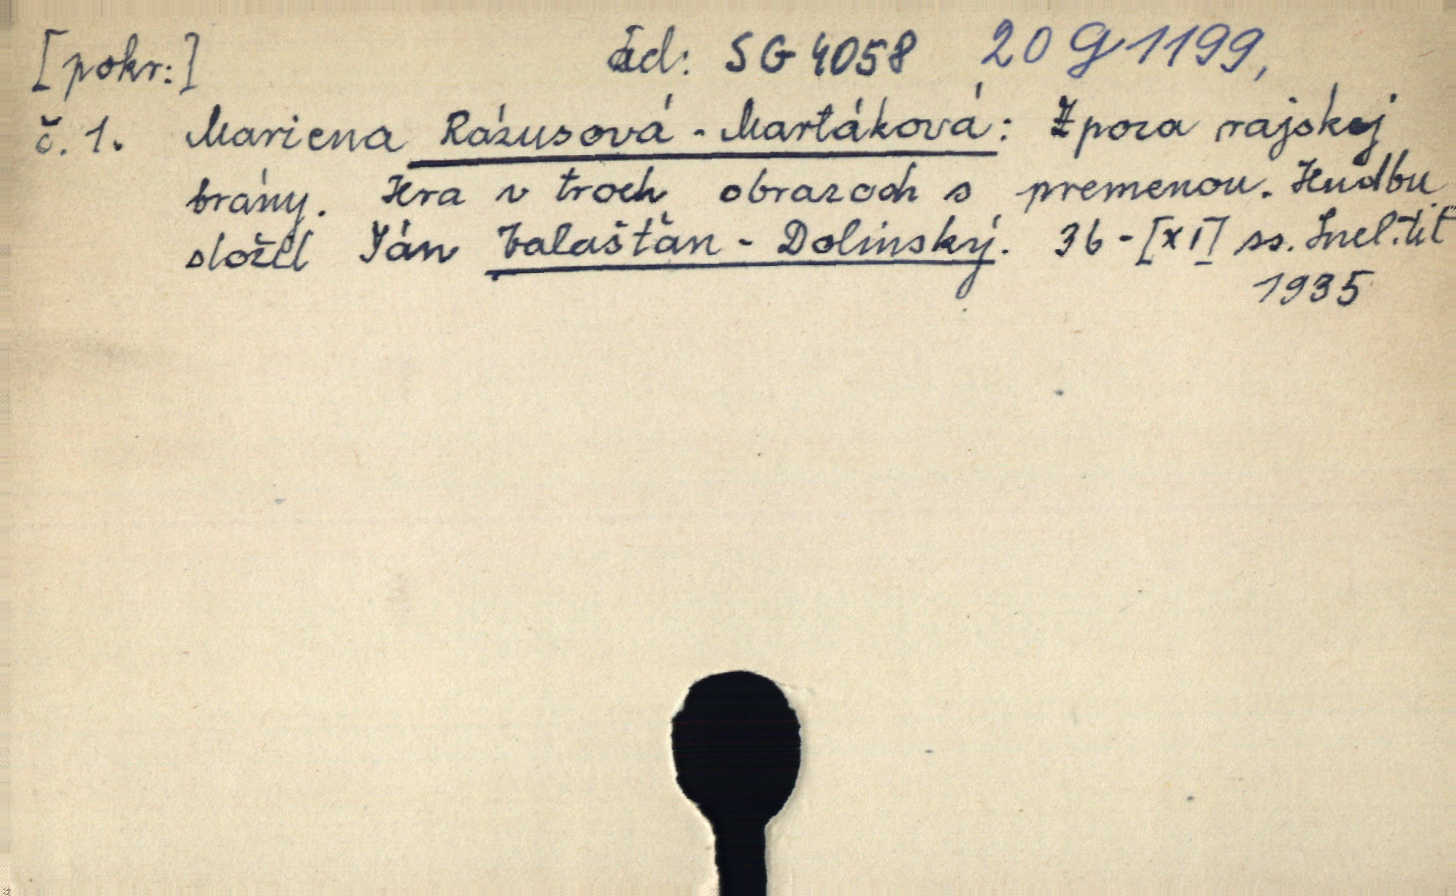 [pokr:] ad: SG 4058 20 G 1199,
č. 1. Mariena Rázusová - Martáková: Zpoza rajskej
brány. Hra v troch obrazoch s premenou. Hudbu
složil Ján Valašťan - Dolinský. 36 - [XI] ss. Incl. tit
1935